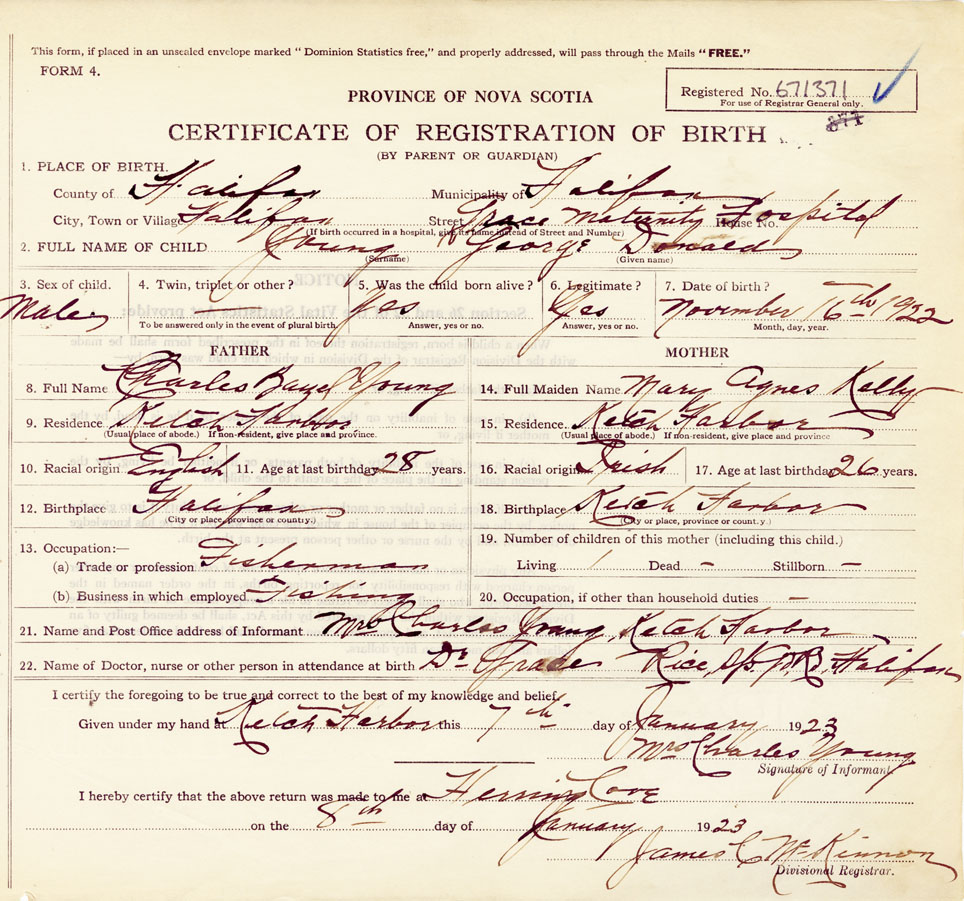 This form, if placed in an unsealed envelope marked "Dominion Statistics free," and properly addressed, will pass through the Mails "FREE."
FORM 4.
Registered No. 671371
For use of Registrar General only.
PROVINCE OF NOVA SCOTIA
371
CERTIFICATE OF REGISTRATION OF BIRTH
(BY PARENT OR GUARDIAN)
1. PLACE OF BIRTH.
County of Halifax Municipality of Halifax
City, Town or Village Halifax Street Grace Maternity Hospital House No.
(If birth occurred in a hospital, give its name instead of Street and Number)
2. FULL NAME OF CHILD Young George Donald
(Surname) (Given name)
3. Sex of child. 4. Twin, triplet or other? 5. Was the child born alive? 6. Legitimate? 7. Date of birth?
Male Yes Yes November 16th 1922
To be answered only in the event of plural birth. Answer, yes or no. Answer, yes or no. Month, day, year.
FATHER MOTHER
8. Full Name Charles Bazel Young 14. Full Maiden Name Mary Agnes Kelly
9. Residence Ketch Harbor 15. Residence. Ketch Harbor
(Usual place of abode.) If non-resident, give place and province. (Usual place of abode.) If non-resident, give place and province
10. Racial origin English 11. Age at last birthday 28 years. 16. Racial origin Irish 17. Age at last birthday 26 years.
12. Birthplace Halifax 18. Birthplace Ketch Harbor
(City or place, province or country.) (City or place, province or county.)
13. Occupation:— 19. Number of children of this mother (including this child.)
(a) Trade or profession Fisherman Living 1 Dead - Stillborn -
(b) Business in which employed Fishing 20. Occupation, if other than household duties -
21. Name and Post Office address of Informant Mrs Charles Young, Ketch Harbor
22. Name of Doctor, nurse or other person in attendance at birth Dr Grace Rice, Halifax
I certify the foregoing to be true and correct to the best of my knowledge and belief.
Given under my hand at Ketch Harbor this 7th day of January 1923
Mrs Charles Young
Signature of Informant.
I hereby certify that the above return was made to me at Herring Cove
on the 8th day of January 1923
James C McKinnon
Divisional Registrar.